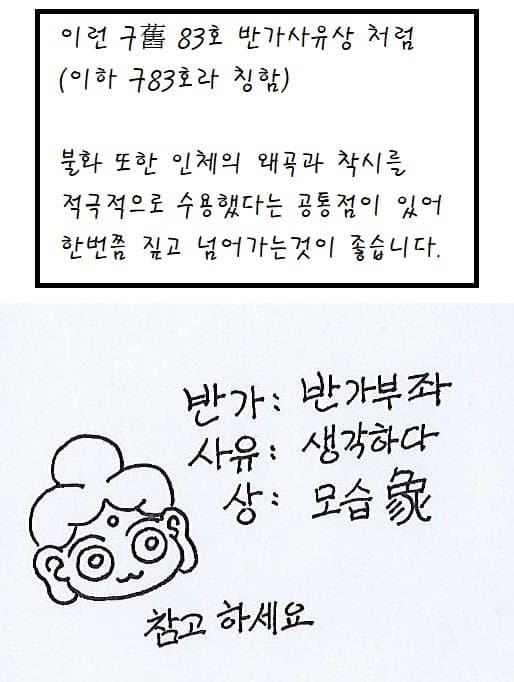 이런 구舊 83호 반가사유상 처럼
(이하 구83호라 칭함)
불화 또한 인체의 왜곡과 착시를
적극적으로 수용했다는 공통점이 있어
한번쯤 짚고 넘어가는것이 좋습니다.
반가: 반가부좌
사유: 생각하다
상: 모습 象
참고 하세요